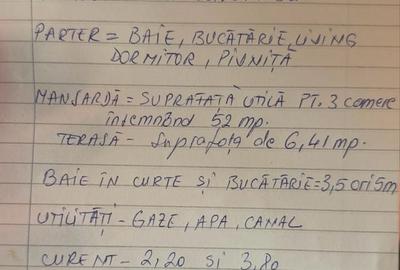 PARTER = BAIE, BUCĂTĂRIE, LIVING
DORMITOR, PIVNIȚĂ
MANSARDĂ = SUPRAFAȚĂ UTILĂ PT. 3 camere
însemnând 52 mp.
TERASĂ - Suprafața de 6,41 mp.
BAIE ÎN CURTE ȘI BUCĂTĂRIE = 3,5 ori 5m
UTILITĂȚI - GAZE, APA, CANAL
CURENT - 2,20 SI 3,80